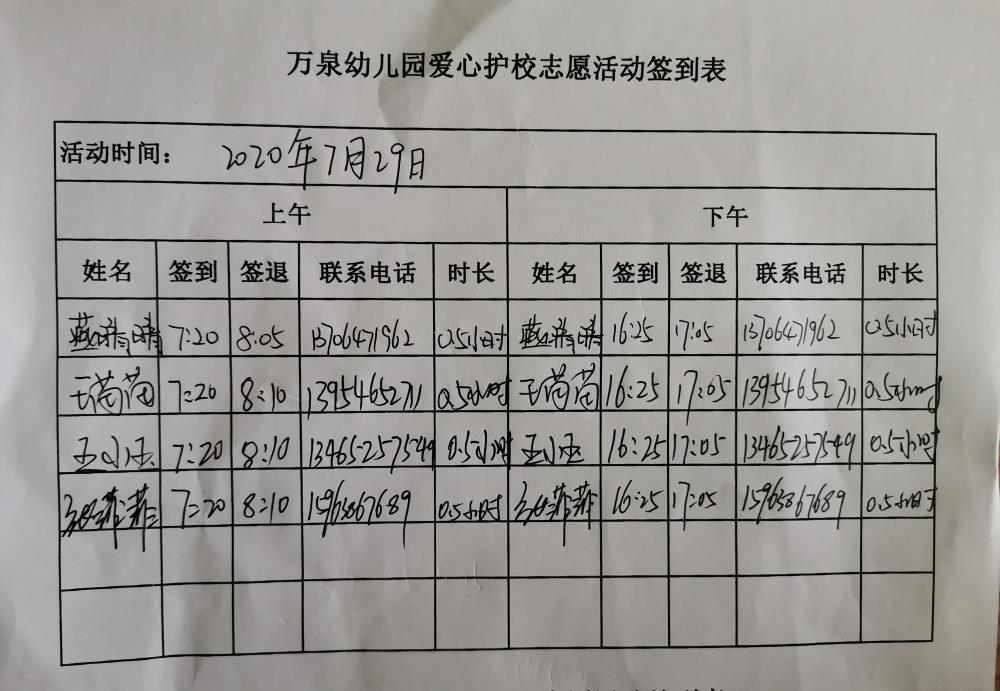 万泉幼儿园爱心护校志愿活动签到表
活动时间： 2020年7月29日
上午 下午
姓名 签到 签退 联系电话 时长 姓名 签到 签退 联系电话 时长
7:20 8:05 13706471962 0.5小时 16:25 17:05 13706471962 0.5小时
王茜茜 7:20 8:10 13954652711 0.5小时 王茜茜 16:25 17:05 13954652711 0.5小时
王小玉 7:20 8:10 13465257549 0.5小时 王小玉 16:25 17:05 13465257549 0.5小时
菲菲 7:20 8:10 15963867689 0.5小时 菲菲 16:25 17:05 15963867689 0.5小时